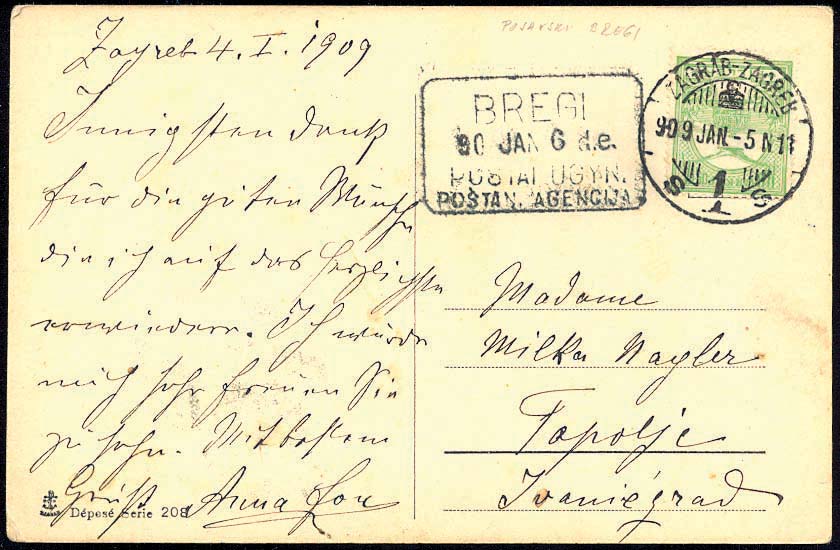 POSAVSKI BREGI
Zagreb 4. I. 1909
Innigsten Dank
für die guten Wünsche
die ich auf das herzlichste
erwiedern. Ich würde
mich sehr freuen Sie
zu sehn. Mit bestem
Gruß Anna
Déposé Serie 208
BREGI
90 JAN 6 d.e.
POSTAI ÜGYN.
POŠTAN. AGENCIJA
ZÁGRÁB-ZAGREB
909 JAN.-5 N 11
S 1 S
Madame
Milka Nagler
Topolje
Ivanićgrad